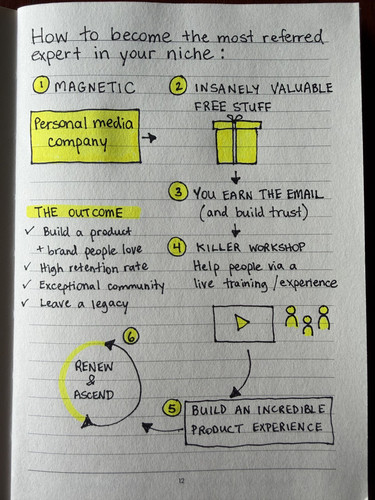 How to become the most referred
expert in your niche:
1 MAGNETIC
Personal media
company
2 INSANELY VALUABLE
FREE STUFF
3 YOU EARN THE EMAIL
(and build trust)
4 KILLER WORKSHOP
Help people via a
live training/experience
5 BUILD AN INCREDIBLE
PRODUCT EXPERIENCE
6
RENEW
&
ASCEND
THE OUTCOME
✓ Build a product
+ brand people love
✓ High retention rate
✓ Exceptional community
✓ Leave a legacy
12